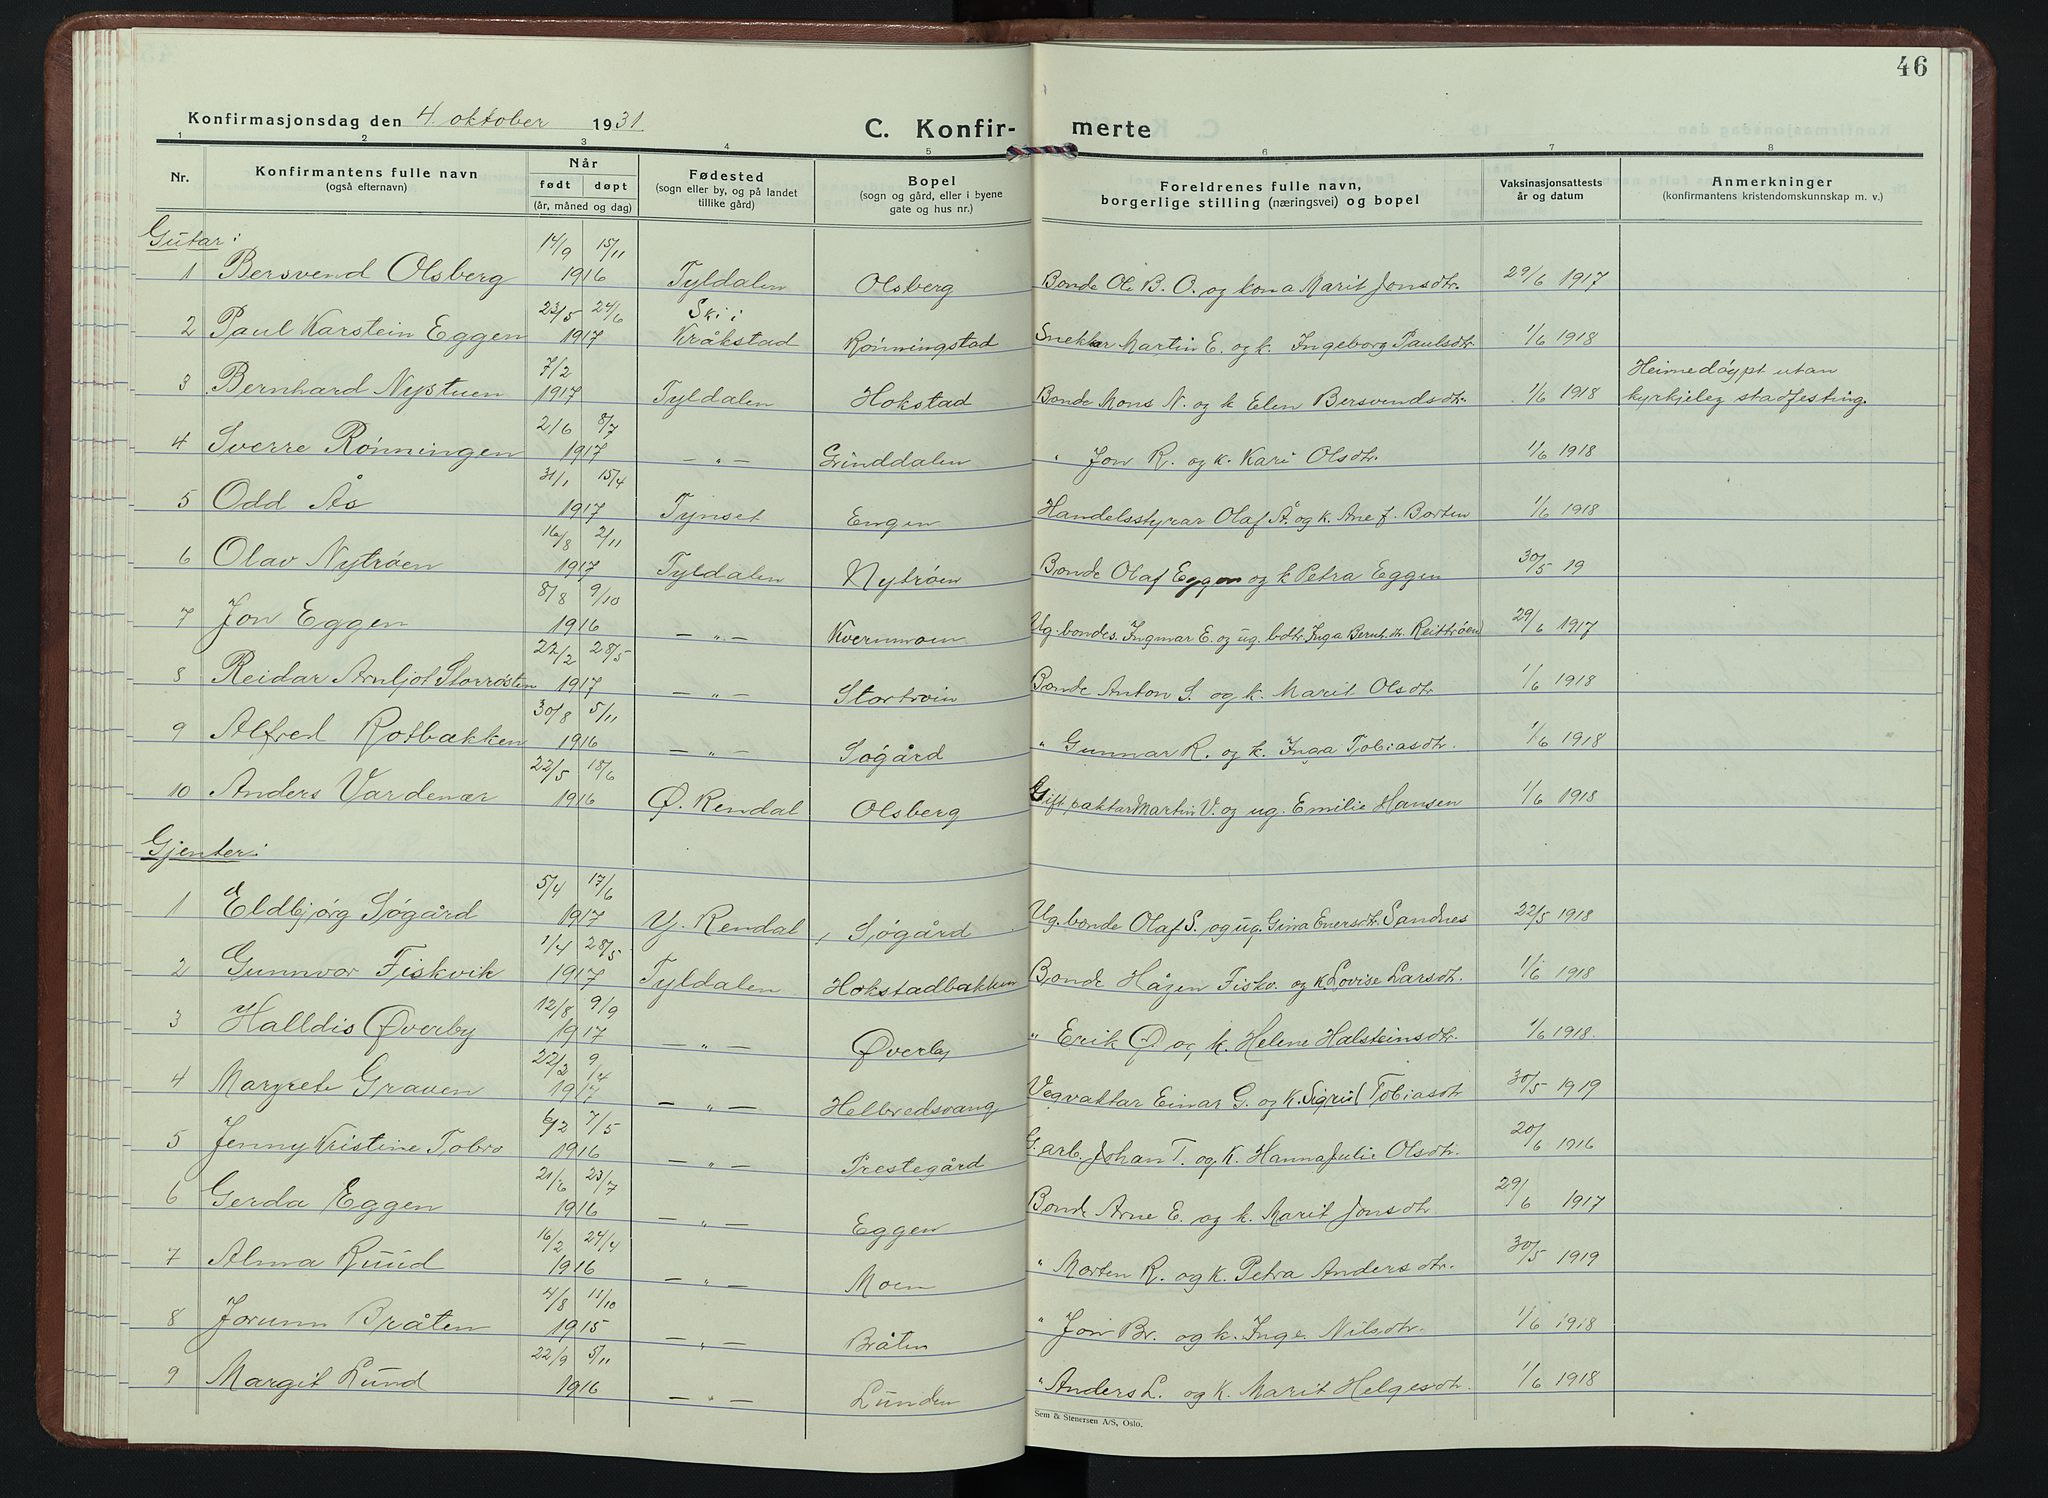 46
Konfirmasjonsdag den 4. oktober 1931
C. Konfir- merte
1 2 3 4 5 6 7 8
Nr.
Konfirmantens fulle navn
(også efternavn)
Når
født døpt
(år, måned og dag)
Fødested
(sogn eller by, og på landet
tillike gård)
Bopel
(sogn og gård, eller i byene
gate og hus nr.)
Foreldrenes fulle navn,
borgerlige stilling (næringsvei) og bopel
Vaksinasjonsattests
år og datum
Anmerkninger
(konfirmantens kristendomskunnskap m. v.)
Gutar:
1 Bersvend Olsberg 14/9 15/11 1916 Tyldalen Olsberg Bonde Ole B. O. og kona Marit Jonsdtr. 29/6 1917
2 Paul Karstein Eggen 23/5 24/6 1917 Ski i Kråkstad Rønningstad Snekkar Martin E. og k. Ingeborg Paulsdtr 1/6 1918
3 Bernhard Nystuen 7/2 1917 Tyldalen Hokstad Bonde Mons N. og k Elen Bersvendsdtr. 1/6 1918 Heimedøypt utan kyrkjeleg stadfesting.
4 Sverre Rønningen 2/6 8/7 1917 — " — Grinddalen " Jon R. og k. Kari Olsdtr. 1/6 1918
5 Odd Ås 31/1 15/4 1917 Tynset Engen Handelsstyrar Olaf Å. og k. Ane f. Borten 1/6 1918
6 Olav Nytrøen 16/8 2/11 1917 Tyldalen Nytrøen Bonde Olaf Eggen og k Petra Eggen 30/5 19
7 Jon Eggen 8/8 9/10 1916 — " — Kvernmoen Ug. bondes. Ingmar E. og ug. bdtr. Inga Bernh.dtr. Reittrøen 29/6 1917
8 Reidar Arnljot Storrøsten 22/2 28/5 1917 — " — Stortroin Bonde Anton S. og k. Marit Olsdtr 1/6 1918
9 Alfred Rotbækken 30/8 5/11 1916 — " — Søgård " Gunnar R. og k. Inga Tobiasdtr. 1/6 1918
10 Anders Vardenær 22/5 18/6 1916 Ø. Rendal Olsberg Gift paktar Martin V. og ug. Emilie Hansen 1/6 1918
Gjenter:
1 Eldbjørg Søgård 5/4 17/6 1917 Y. Rendal, Søgård Ug. bonde Olaf S. og ug. Gina Enersdtr. Sandnes 22/5 1918
2 Gunnvor Fiskvik 1/4 28/5 1917 Tyldalen Hokstadbakken Bonde Hågen Fiskv. og k. Lovise Larsdtr. 1/6 1918
3 Halldis Øverby 12/8 9/9 1917 — " — Øverby " Erik Ø. og k. Helene Halsteinsdtr. 1/6 1918.
4 Margrete Graven 22/2 9/14 1917 — " — Helbredsvang Vegvaktar Einar G. og k. Sigrid Tobiasdtr 30/5 1919
5 Jenny Kristine Tobro 6/2 7/5 1916 — " — Prestegård G. arb. Johan T. og k. Hanna Julie Olsdtr. 20/6 1916
6 Gerda Eggen 21/6 23/7 1916 — " — Eggen Bonde Arne E. og k. Marit Jonsdtr 29/6 1917
7 Alma Ruud 16/2 24/4 1916 — " — Moen " Morten R. og k. Petra Andersdtr. 30/5 1919
8 Jorunn Bråten 4/8 11/10 1915 — " — Bråten " Jon Br. og k. Inge. Nilsdtr. 1/6 1918
9 Margit Lund 22/9 5/11 1916 — " — Lunden " Anders L. og k. Marit Helgesdtr. 1/6 1918
Sem & Stenersen A/S, Oslo.